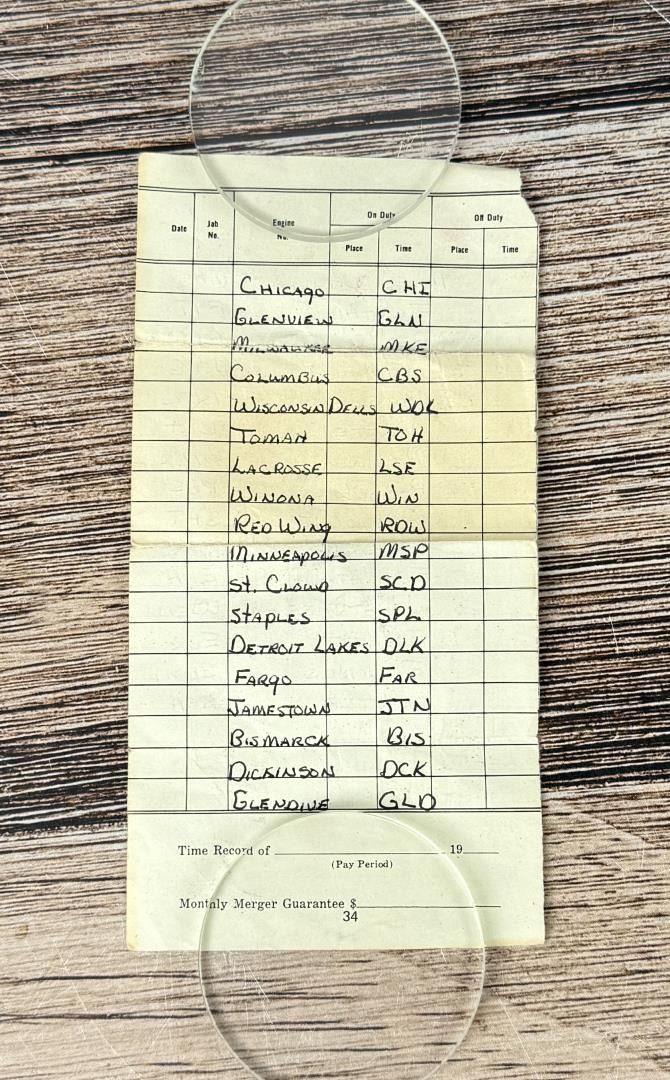 On Duty Off Duty
Date Job No. Engine No. Place Time Place Time
CHICAGO CHI
GLENVIEW GLN
MILWAUKEE MKE
COLUMBUS CBS
WISCONSIN DELLS WDL
TOMAH TOH
LACROSSE LSE
WINONA WIN
RED WING RDW
MINNEAPOLIS MSP
St. CLOUD SCD
STAPLES SPL
DETROIT LAKES DLK
FARGO FAR
JAMESTOWN JTN
BISMARCK BIS
DICKINSON DCK
GLENDIVE GLD
Time Record of 19
(Pay Period)
Monthly Merger Guarantee $
34